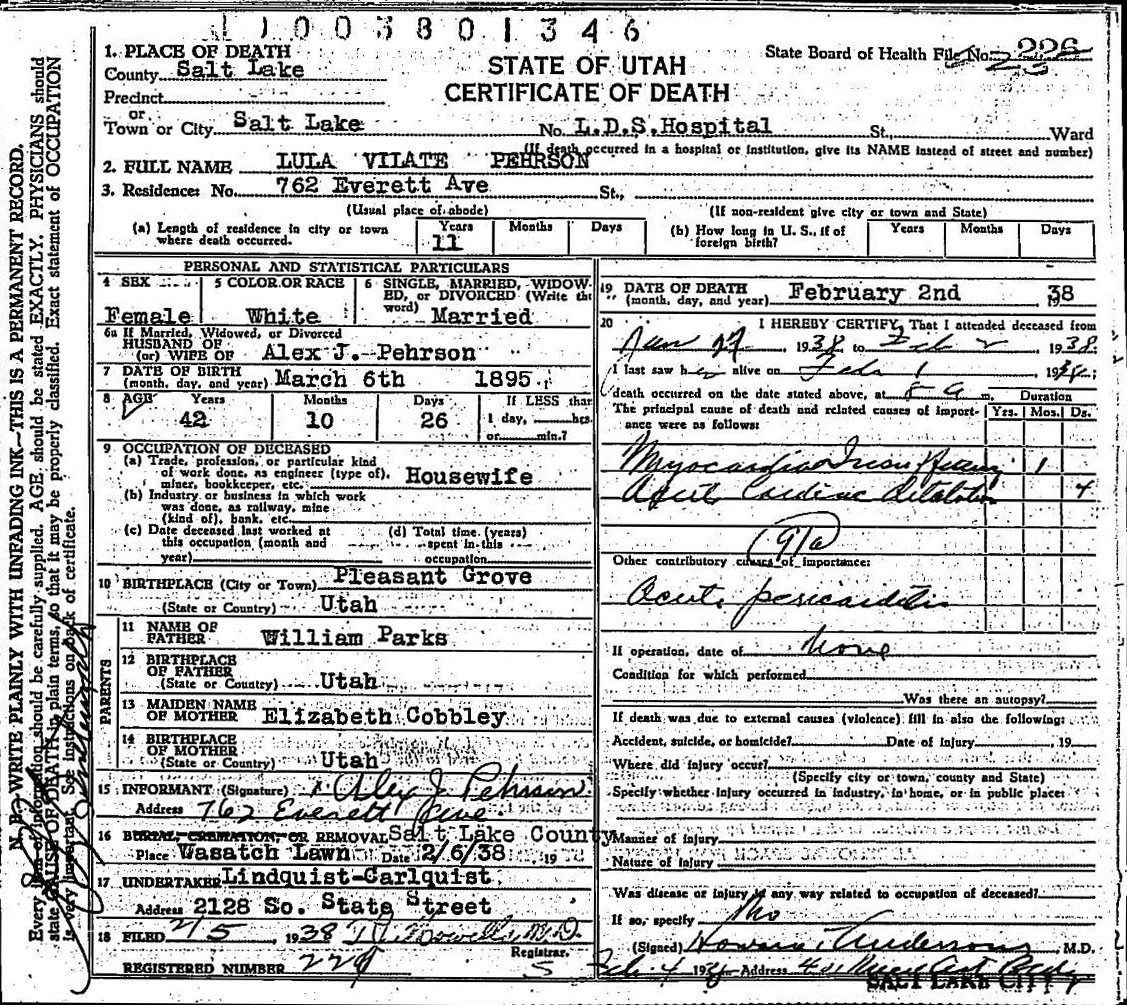 1 1 0 0 3 8 0 1 3 4 6
1. PLACE OF DEATH
County Salt Lake
STATE OF UTAH
CERTIFICATE OF DEATH
State Board of Health File No. 226
Precinct
or
Town or City Salt Lake No. L.D.S.Hospital St., Ward
(If death occurred in a hospital or institution, give its NAME instead of street and number)
2. FULL NAME LULA VILATE PEHRSON
3. Residence: No. 762 Everett Ave St.,
(Usual place of abode) (If non-resident give city or town and State)
(a) Length of residence in city or town where death occurred. Years 11 Months Days
(b) How long in U. S., if of foreign birth? Years Months Days
PERSONAL AND STATISTICAL PARTICULARS
4 SEX Female
5 COLOR OR RACE White
6 SINGLE, MARRIED, WIDOWED, or DIVORCED (Write the word) Married
6a If Married, Widowed, or Divorced
HUSBAND OF
(or) WIFE OF Alex J. Pehrson
7 DATE OF BIRTH
(month, day, and year) March 6th 1895.
8 AGE Years Months Days If LESS than
42 10 26 1 day, hrs.
or min.?
9 OCCUPATION OF DECEASED
(a) Trade, profession, or particular kind
of work done, as engineer (type), Housewife
miner, bookkeeper, etc.
(b) Industry or business in which work
was done, as railway, mine
(kind of), bank, etc.
(c) Date deceased last worked at (d) Total time (years)
this occupation (month and spent in this
year) occupation
10 BIRTHPLACE (City or Town) Pleasant Grove
(State or Country) Utah
PARENTS
11 NAME OF
FATHER William Parks
12 BIRTHPLACE
OF FATHER
(State or Country) Utah
13 MAIDEN NAME
OF MOTHER Elizabeth Cobbley
14 BIRTHPLACE
OF MOTHER
(State or Country) Utah
15 INFORMANT (Signature) x Alex J. Pehrson
Address 762 Everett Ave.
16 BURIAL CREMATION OR REMOVAL Salt Lake County
Place Wasatch Lawn Date 2/6/38 19
17 UNDERTAKER Lindquist-Carlquist
Address 2128 So. State Street
18 FILED 2/5 1938 M.D.
Registrar.
REGISTERED NUMBER 5
19 DATE OF DEATH
(month, day, and year) February 2nd 1938
20 I HEREBY CERTIFY, That I attended deceased from
Jan 27, 1938, to Feb 2, 1938
I last saw her alive on Feb 1, 1938;
death occurred on the date stated above, at 8 a m. Duration
The principal cause of death and related causes of importance were as follows: Yrs. Mos. Ds.
Myocardial Insufficiency 1
Acute Cardiac dilatation 4
Other contributory causes of importance:
Acute pericarditis
If operation, date of None
Condition for which performed
Was there an autopsy?
If death was due to external causes (violence) fill in also the following:
Accident, suicide, or homicide? Date of Injury , 19
Where did injury occur?
(Specify city or town, county and State)
Specify whether injury occurred in industry, in home, or in public place:
Manner of injury
Nature of injury
Was disease or injury in any way related to occupation of deceased?
If so, specify No
(Signed) Howard T. Anderson M.D.
Feb. 4 1938 Address
SALT LAKE CITY
N. B.—WRITE PLAINLY WITH UNFADING INK—THIS IS A PERMANENT RECORD.
Every item of information should be carefully supplied. AGE should be stated EXACTLY. PHYSICIANS should
state CAUSE OF DEATH in plain terms, so that it may be properly classified. Exact statement of OCCUPATION
is very important. See instructions on back of certificate.